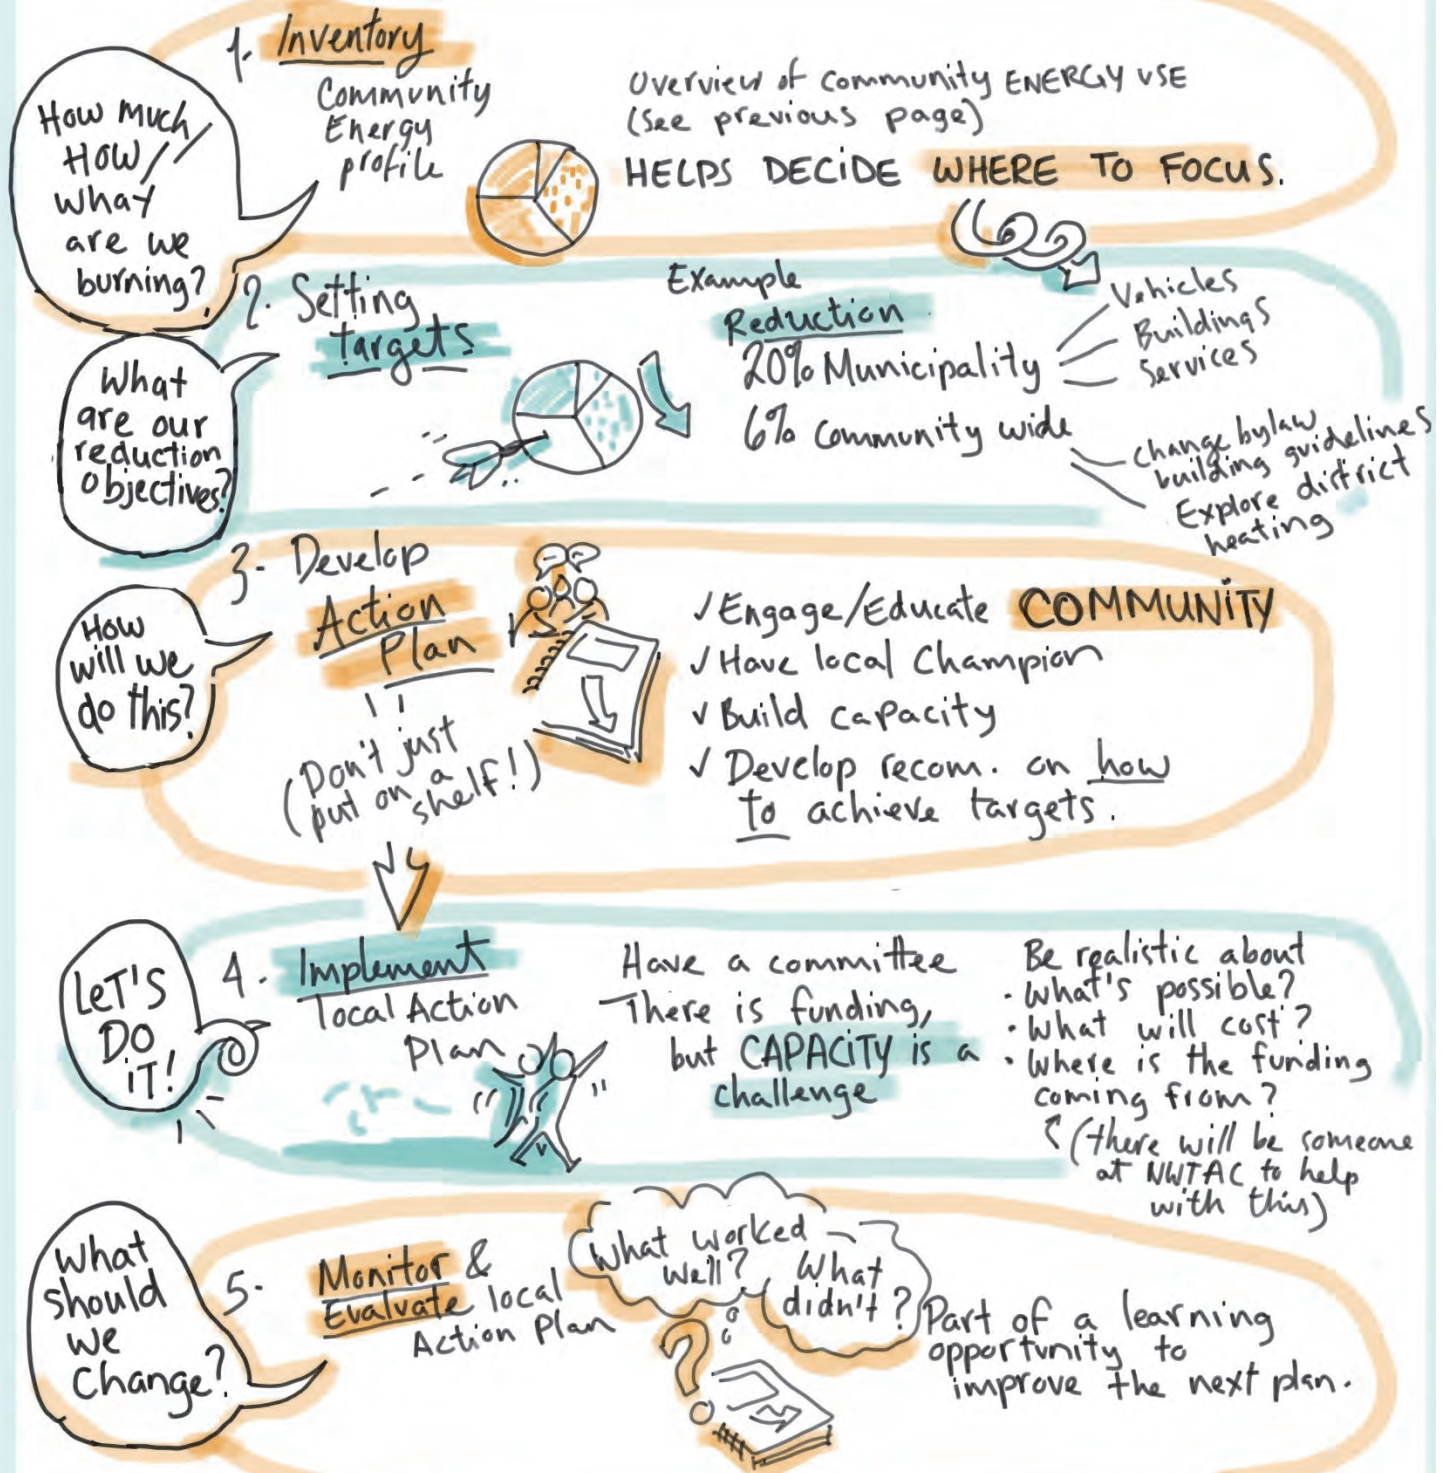 How much/
How/
what
are we
burning?
1. Inventory
Community
Energy
profile
Overview of community ENERGY USE
(see previous page)
HELPS DECIDE WHERE TO FOCUS.
What
are our
reduction
objectives?
2. Setting
targets
Example
Reduction
20% Municipality
Vehicles
Buildings
Services
6% Community wide
change bylaw
building guidelines
Explore district
heating
How
will we
do this?
3- Develop
Action
Plan
(Don't just
put on a
shelf!)
✓ Engage/Educate COMMUNITY
✓ Have local Champion
✓ Build capacity
✓ Develop recom. on how
to achieve targets.
LET'S
DO
IT!
4. Implement
local Action
Plan
Have a committee
There is funding,
but CAPACITY is a
challenge
Be realistic about
• What's possible?
• What will cost?
• Where is the funding
coming from?
(there will be someone
at NWTAC to help
with this)
What
should
we
Change?
5- Monitor &
Evaluate local
Action Plan
What worked
well?
What
didn't?
Part of a learning
opportunity to
improve the next plan.